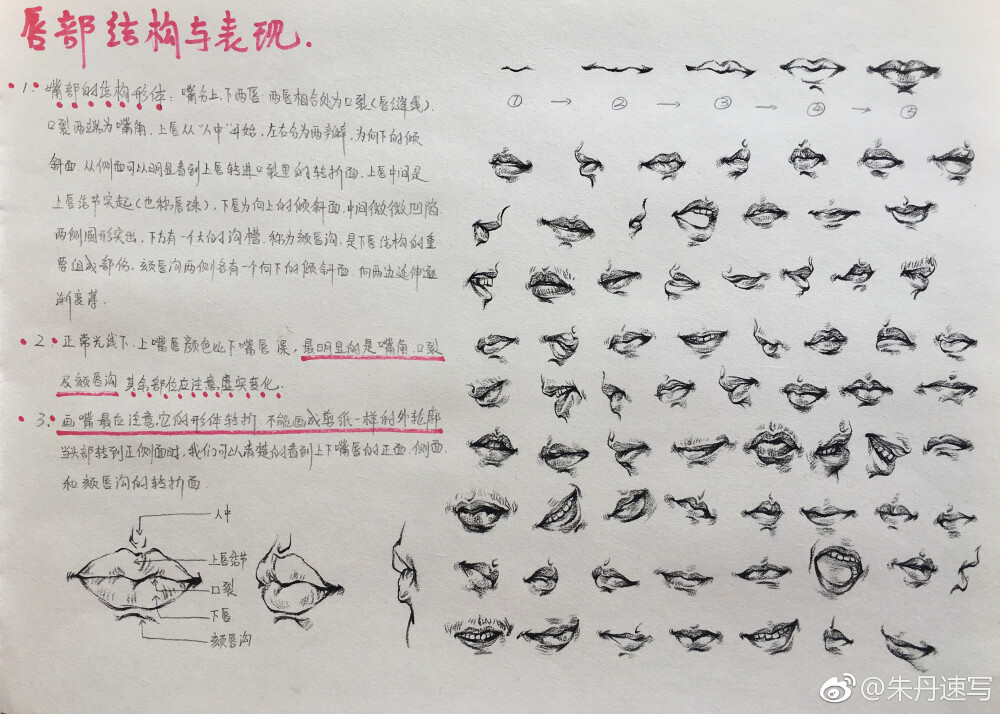 唇部结构与表现.
1、嘴部的结构形体：嘴分上,下两唇.两唇相合处为口裂(唇缝线).
口裂两端为嘴角.上唇从"人中"开始,左右分为两瓣,为向下的倾
斜面.从侧面可以明显看到上唇转进口裂里的转折面,上唇中间是
上唇结节突起(也称唇珠),下唇为向上的倾斜面.中间微微凹陷.
两侧圆形突出,下方有一个大的沟槽.称为颏唇沟,是下唇结构的重
要组成部份,颏唇沟两侧各有一个向下的倾斜面.向两边延伸逐
渐变薄.
2、正常光线下.上嘴唇颜色比下嘴唇 深,最明显的是嘴角.口裂
及颏唇沟 其余部位应注意虚实变化.
3、画嘴最应注意它的形体转折 不能画成剪纸一样的外轮廓
当头部转到正侧面时,我们可以清楚的看到上下嘴唇的正面.侧面.
和颏唇沟的转折面.
人中
上唇结节
口裂
下唇
颏唇沟
① → ② → ③ → ④ → ⑤
@朱丹速写